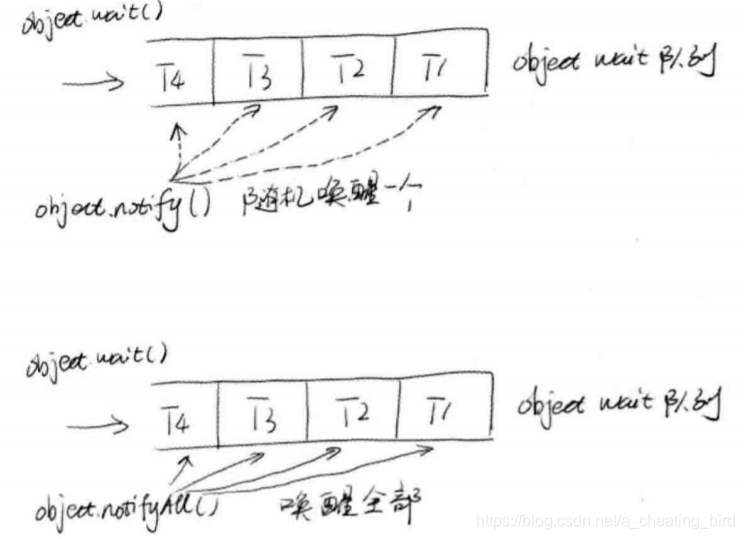 object.wait()
T4 T3 T2 T1 object wait 队列
object.notify() 随机唤醒一个
object.wait()
T4 T3 T2 T1 object wait 队列
object.notifyAll() 唤醒全部
https://blog.csdn.net/a_cheating_bird